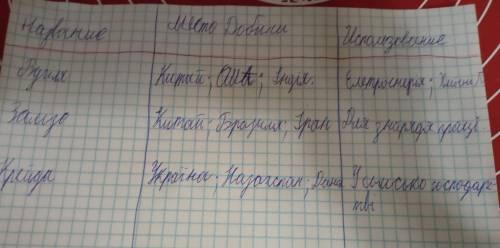 Название Место Добычи Использование
Вугиля Китай; США; Індія. Електроенергія;
Залізо Китай; Бразилия; Іран Для знарядя праці
Крейда Україна; Казахстан; Дания У сільсько господарс-
тві